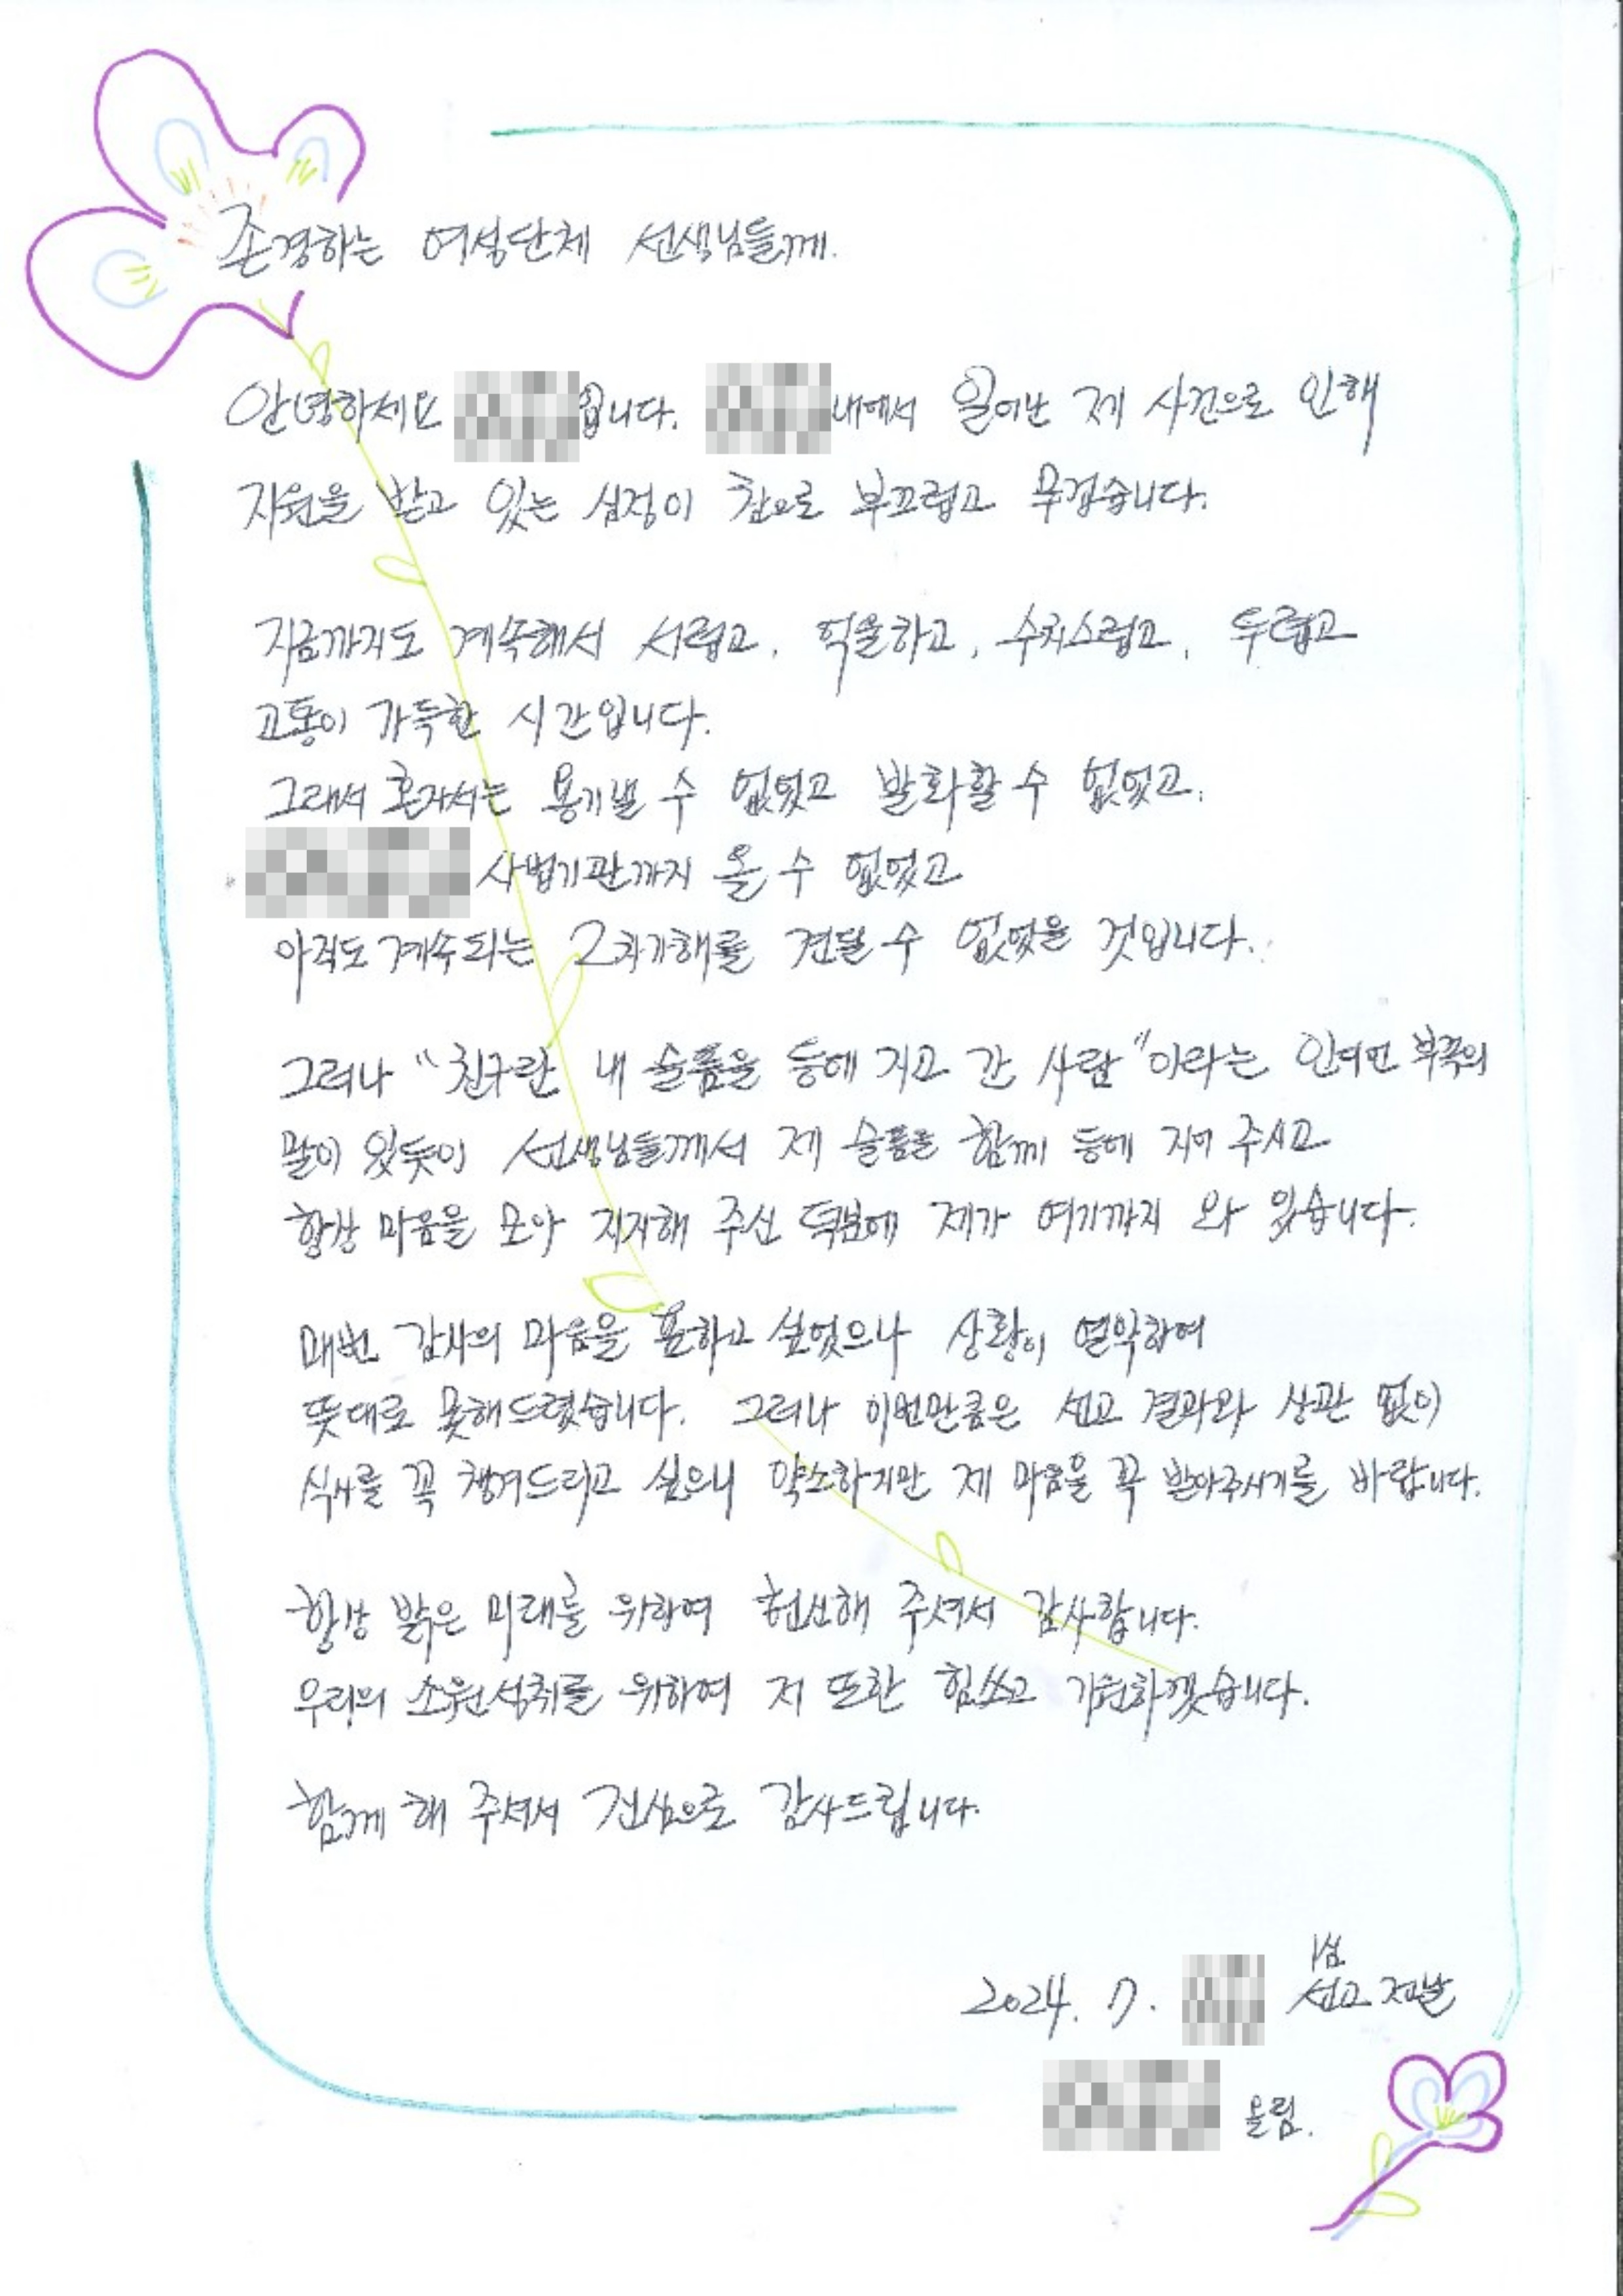 존경하는 여성단체 선생님들께.
안녕하세요 입니다. 내에서 일어난 제 사건으로 인해
지원을 받고 있는 심정이 참으로 부끄럽고 무겁습니다.
지금까지도 계속해서 서럽고, 억울하고, 수치스럽고, 두렵고
고통이 가득한 시간입니다.
그래서 혼자서는 용기낼 수 없었고 발화할 수 없었고,
사법기관까지 올 수 없었고
아직도 계속되는 2차가해를 견딜 수 없었을 것입니다.
그러나 "친구란 내 슬픔을 등에 지고 간 사람"이라는 인디언 부족의
말이 있듯이 선생님들께서 제 슬픔을 함께 등에 지어 주시고
항상 마음을 모아 지지해 주신 덕분에 제가 여기까지 와 있습니다.
매번 감사의 마음을 표하고 싶었으나 상황이 열악하여
뜻대로 못해드렸습니다. 그러나 이번만큼은 선고 결과와 상관 없이
식사를 꼭 챙겨드리고 싶으니 약소하지만 제 마음을 꼭 받아주시기를 바랍니다.
항상 밝은 미래를 위하여 헌신해 주셔서 감사합니다.
우리의 소원성취를 위하여 저 또한 힘쓰고 기원하겠습니다.
함께 해 주셔서 진심으로 감사드립니다.
1심
2024. 7. 선고 전날
올림.